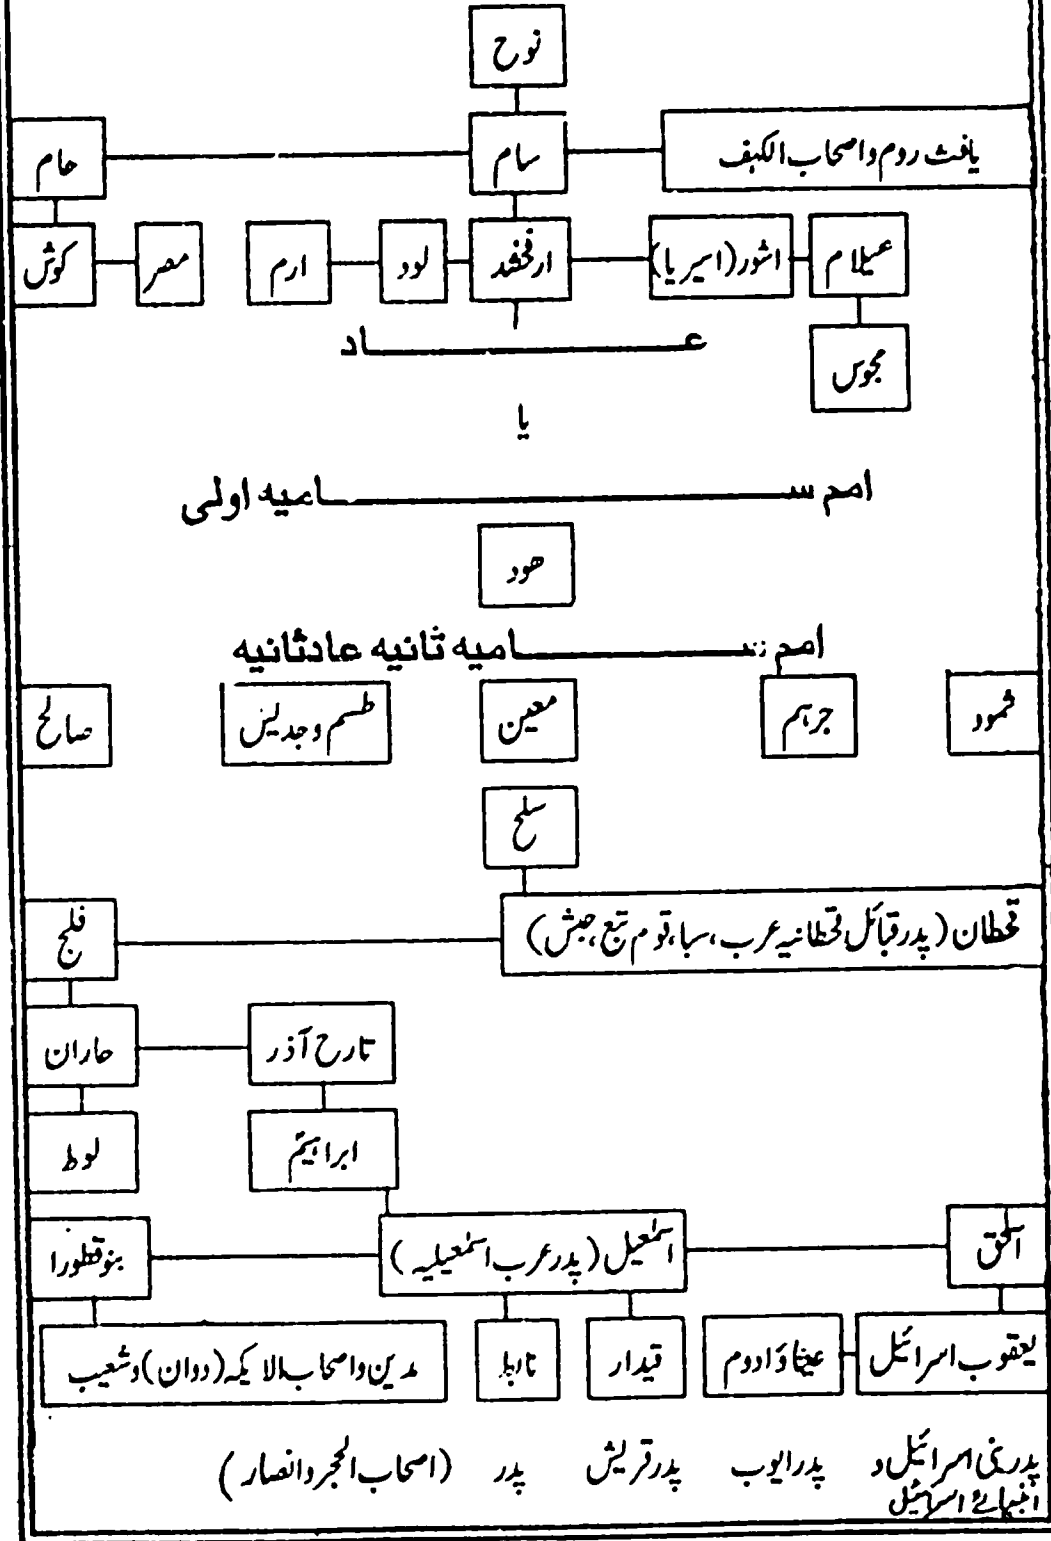 نوح
یافث روم واصحاب الکہف
سام
حام
عیلام
اشور (اسیریا)
ارفخشد
لود
ارم
مصر
کوش
مجوس
عاد
یا
امم سامیہ اولی
ھود
امم سامیہ ثانیہ عادثانیہ
ثمود
جرہم
معین
طسم وجدیس
صالح
سلح
قحطان (پدر قبائل قحطانیہ عرب، سبا، قوم تبع، حبش)
فلج
تارح آذر
حاران
ابراہیم
لوط
اسحٰق
اسمٰعیل (پدر عرب اسمٰعیلیہ)
بنو قطورا
یعقوب اسرائیل
عیسا و ادوم
قیدار
نابط
مدین واصحاب الایکہ (ددان) وشعیب
پدر بنی اسرائیل و
پدر ایوب
پدر قریش
پدر (اصحاب الحجر وانصار)
انبیائے اسرائیل